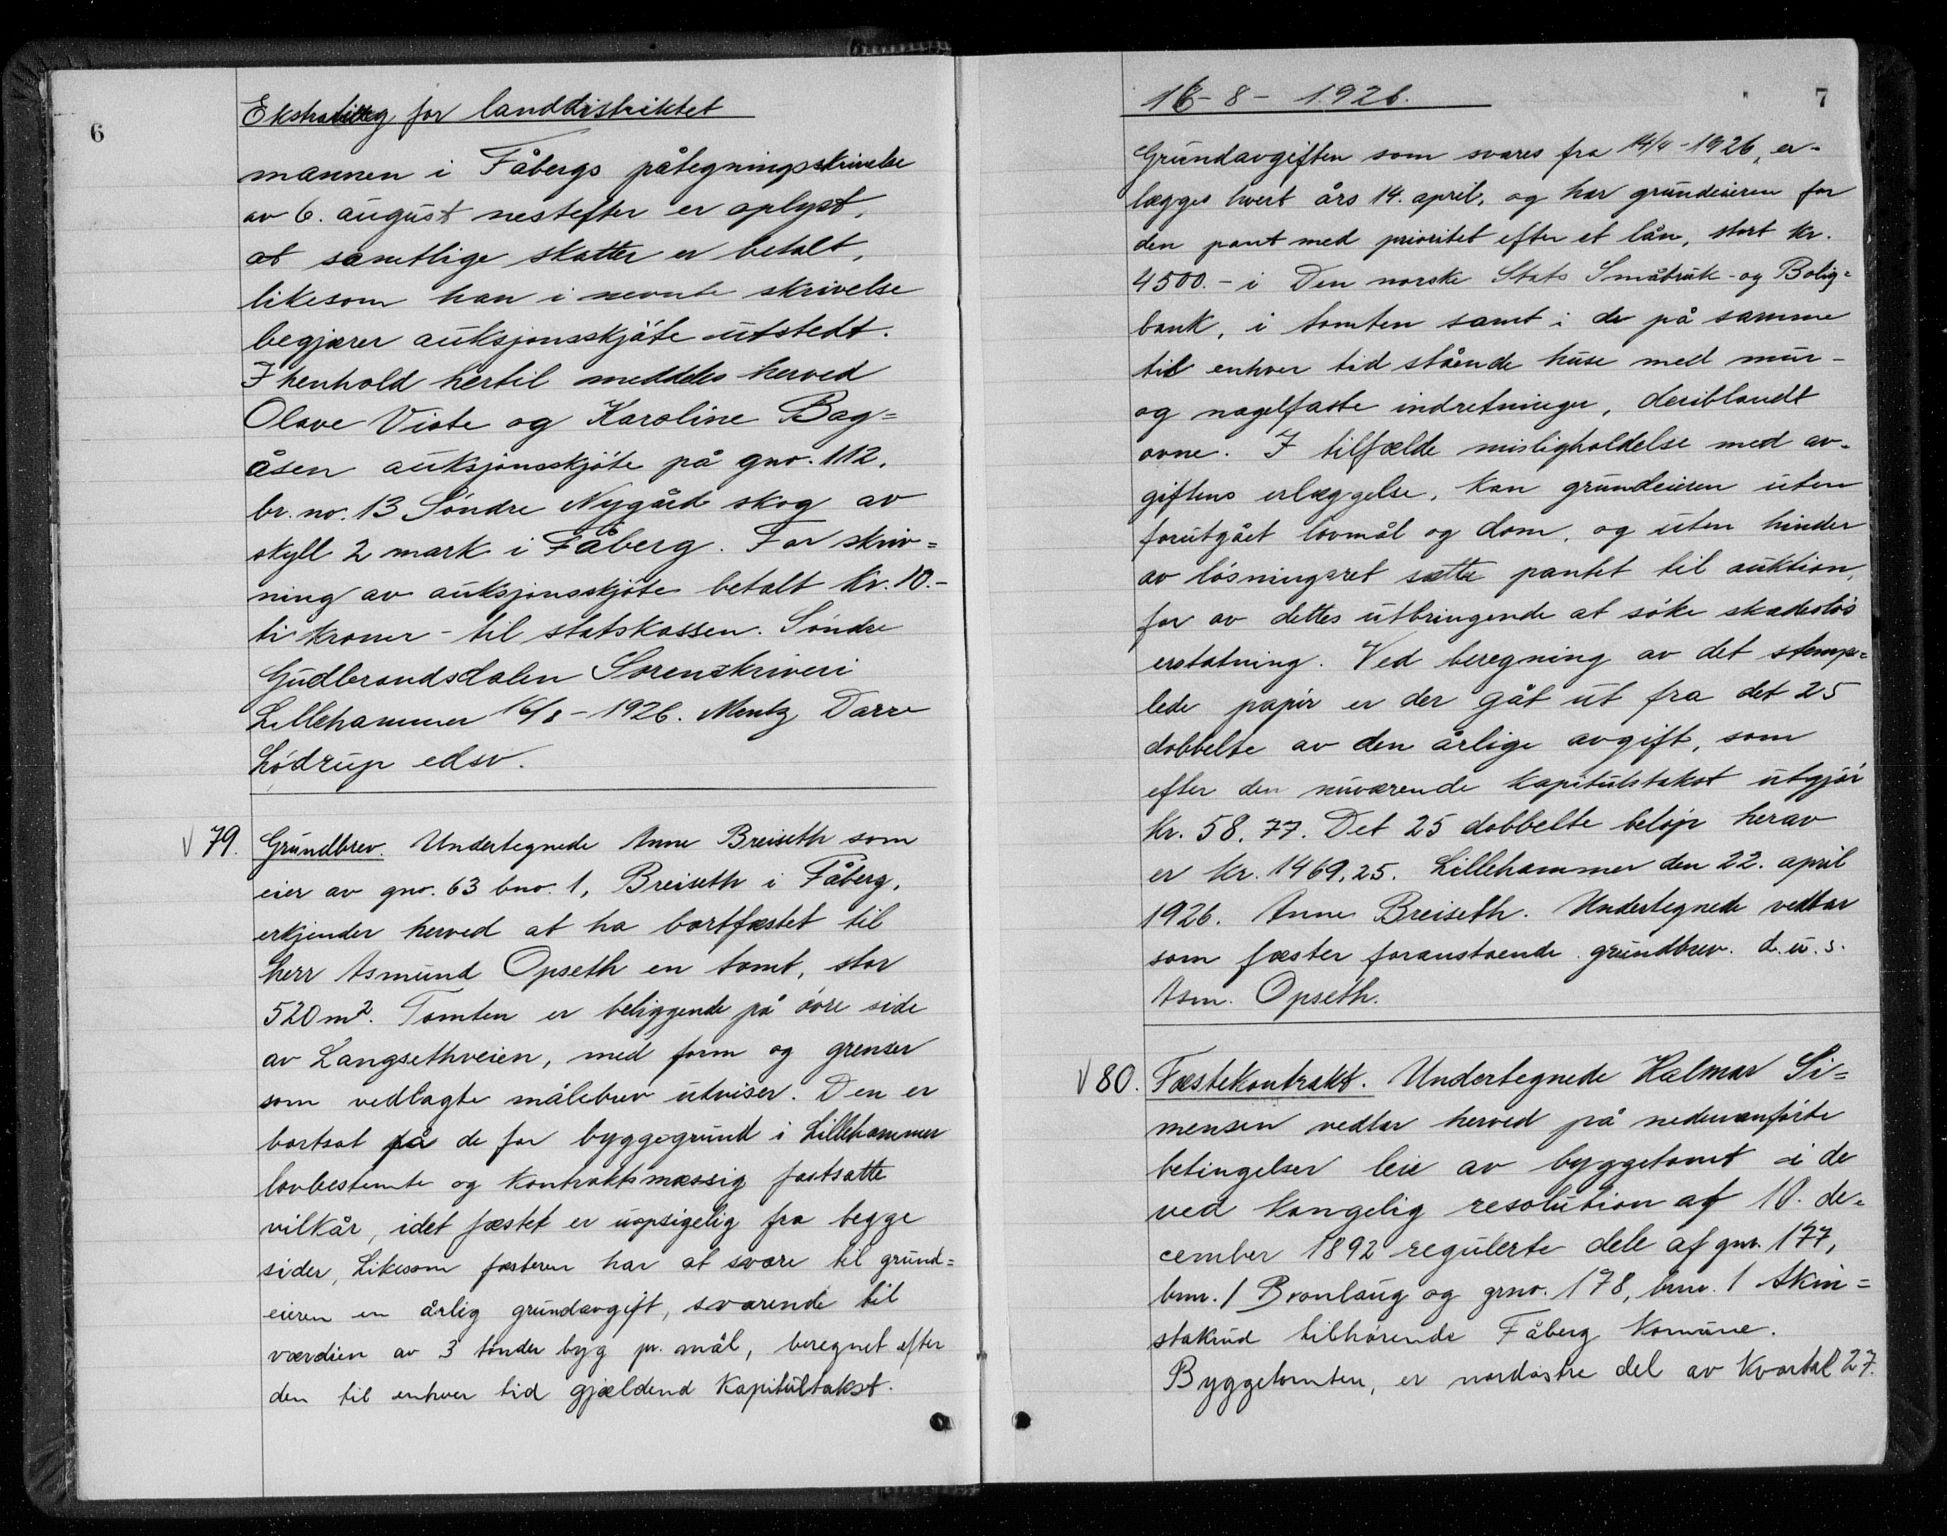 6
Ekstratillæg for landdistriktet
mannen i Fåbergs påtegningsskrivelse
av 6. august nestefter er oplyst,
at samtlige skatter er betalt,
likesom han i nevnte skrivelse
begjærer auksjonsskjöte utstedt.
I henhold hertil meddeles herved
Olave Viste og Karoline Bag=
åsen auksjonsskjöte på gno. 112,
br. no. 13 Söndre Nygård skog av
skyll 2 mark i Fåberg. For skriv=
ning av auksjonsskjöte betalt kr. 10.-
ti kroner - til statskassen. Söndre
Gudbrandsdalen Sorenskriveri
Lillehammer 16/8 - 1926. Mentz Darre
Lödrup edsv.
√ 79. Grundbrev. Undertegnede Anne Breiseth som
eier av gno. 63 bno. 1, Breiseth i Fåberg,
erkjender herved at ha bortfæstet til
herr Asmund Opseth en tomt, stor
520 m². Tomten er beliggende på övre side
av Langsethveien, med form og grenser
som vedlagte målebrev utviser. Den er
bortsat på de for byggegrund i Lillehammer
lovbestemte og kontraktsmæssig fastsatte
vilkår, idet fæstet er uopsigelig fra begge
sider, Likesom fæsteren har at svare til grund=
eieren en årlig grundavgift, svarende til
værdien av 3 tönder byg pr. mål, beregnet efter
den til enhver tid gjældend kapitulstakst.
7
16 - 8 - 1926.
Grundavgiften som svares fra 14/4 - 1926, er-
lægges hvert års 14. april, og har grundeieren for
den pant med prioritet efter et lån, stort kr.
4500.- i Den norske Stats Småbruk- og Bolig=
bank, i tomten samt i de på samme
til enhver tid stående huse med mur-
og nagelfaste indretninger, deriblandt
ovne. I tilfælde misligholdelse med av-
giftens erlæggelse, kan grundeieren uten
forutgået lovmål og dom, og uten hinder
av lösningsret sætte pantet til auktion,
for av dettes utbringende at söke skadeslös
erstatning. Ved beregning av det stemp=
lede papir er der gåt ut fra det 25
dobbelte av den årlige avgift, som
efter den nuværende kapitulstakst utgjör
kr. 58.77. Det 25 dobbelte belöp herav
er kr. 1469.25. Lillehammer den 22. april
1926. Anne Breiseth. Undertegnede vedtar
som fæster foranstaaende grundbrev. d. u. s.
Asm. Opseth.
√ 80. Fæstekontrakt. Undertegnede Halmar Si=
mensen vedtar herved på nedenanförte
betingelser leie av byggetomt i de
ved kongelig resolution af 10. de-
cember 1892 regulerte dele af gnr. 177,
bnr. 1 Bronlaug og grno. 178, bnr. 1 Skin=
stakrud tilhörende Fåberg Komune.
Byggetomten, er nordöstre del av Kvartal 27.